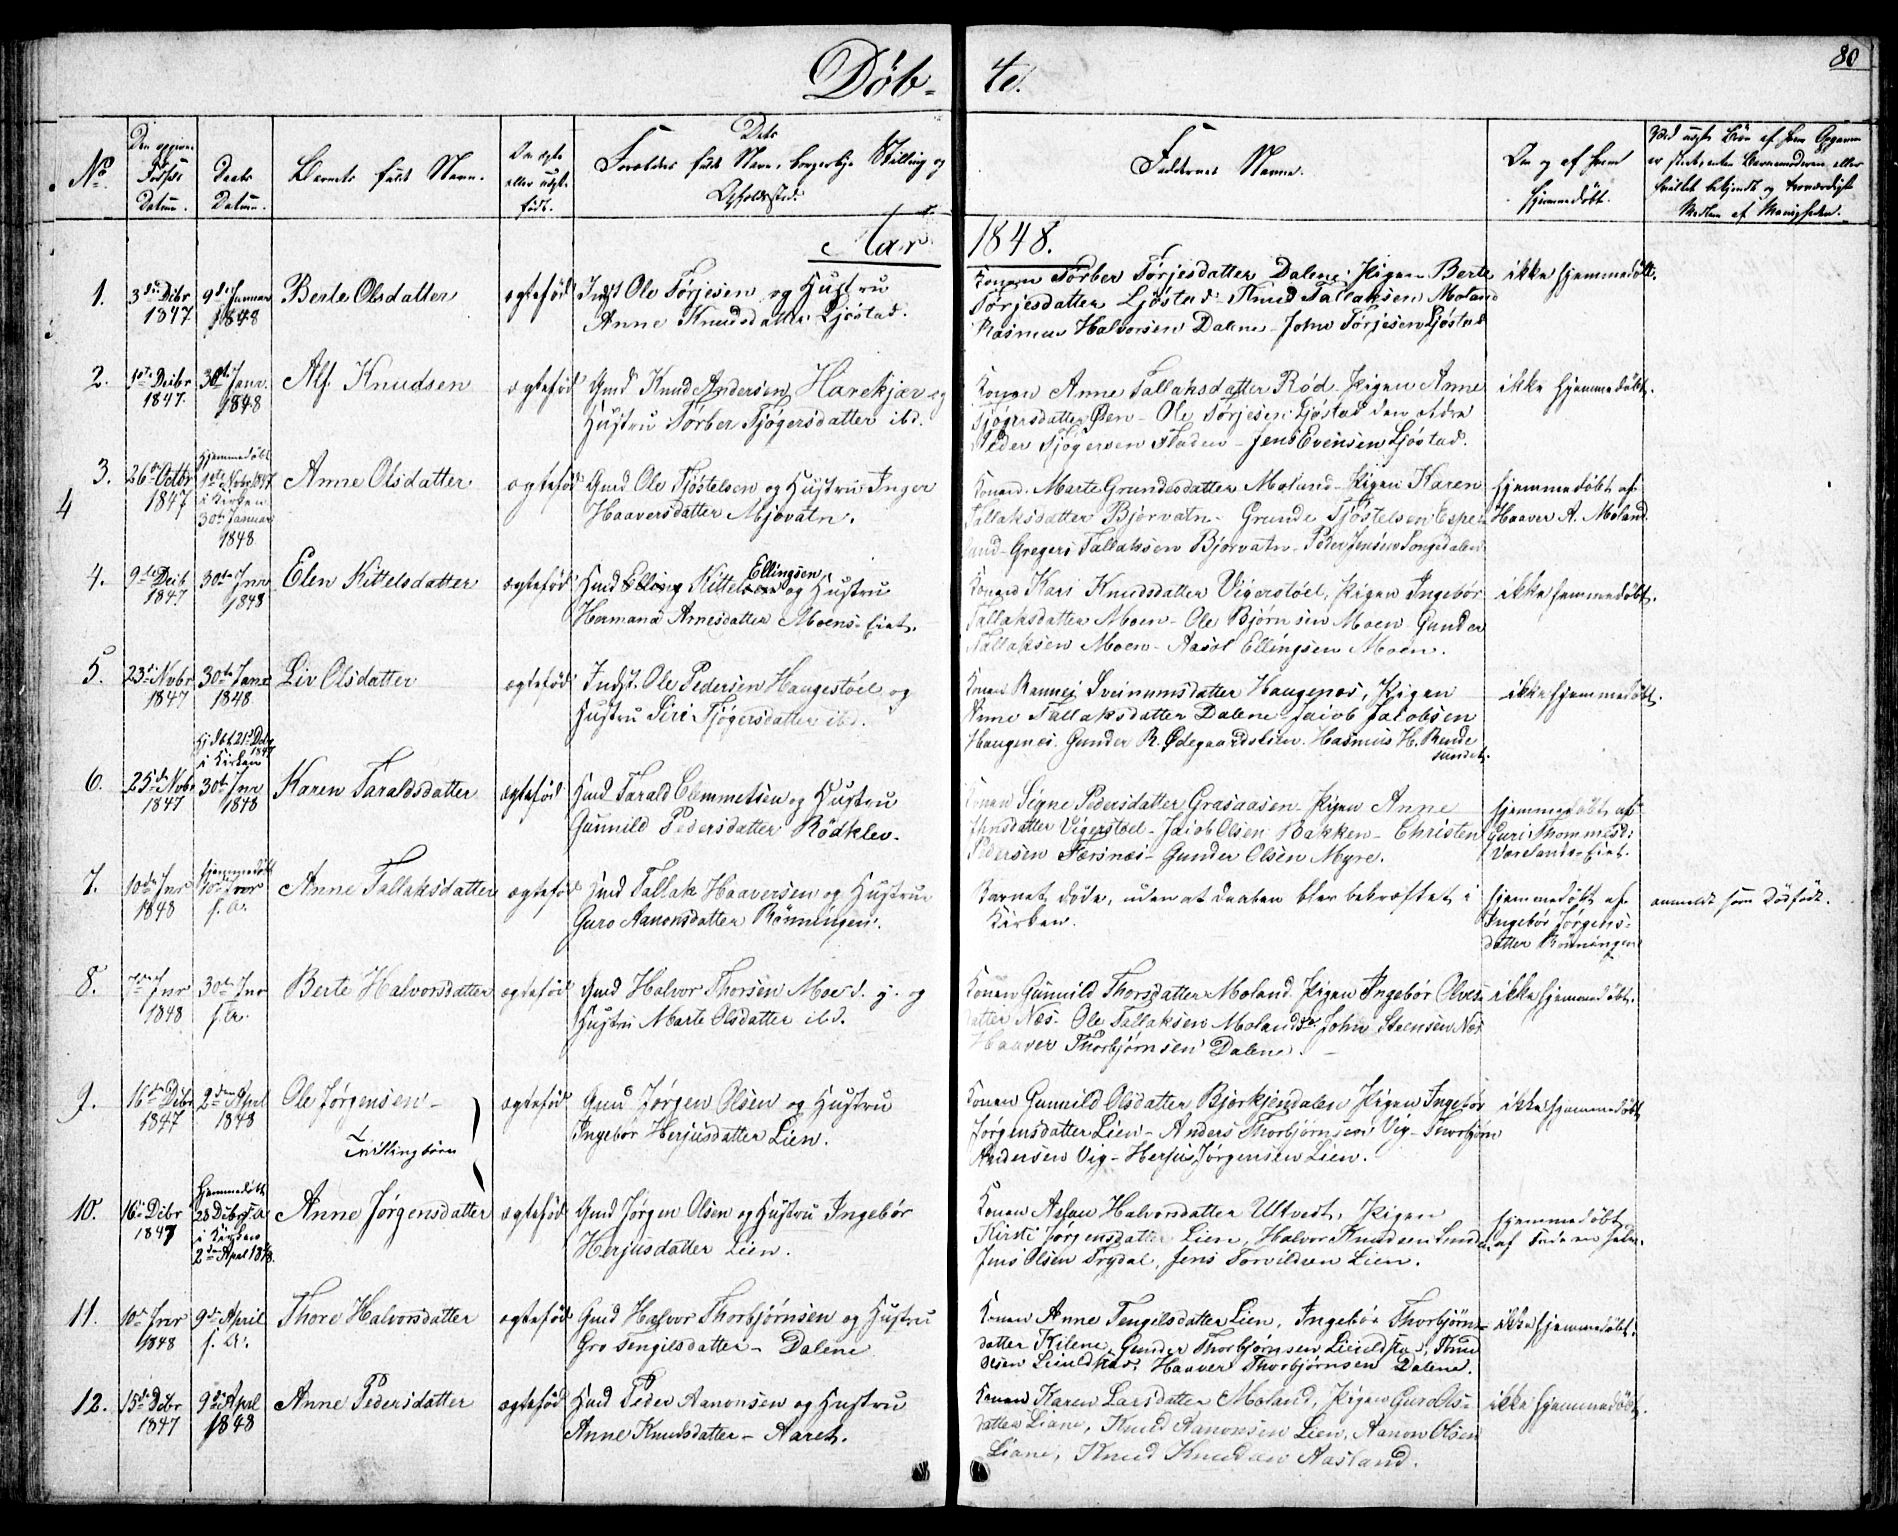 80
Døb- te.
No.
Den opgivne Fødsels Datum.
Daabs Datum.
Barnets fulde Navn.
Om ægte eller uægte født.
Dets Forældres fulde Navn, borgerlige Stilling og Opholdssted.
Faddernes Navne.
Om og af hvem hjemmedøbt.
Ved uægte Børn af hvem Opgaven er skeet, enten Barnemoderen eller hvilket bekjendt og troværdigt Medlem af Menigheden.
Aar 1848.
1. 3die Decbr 1847 9de Januar 1848 Berte Olsdatter ægtefød Indst Ole Tørjesen og Hustru
Anne Knudsdatter Ljøstad.
Konen Tørber Tørjesdatter Dalene. Pigen Berte
Tørjesdatter Ljøstad. Knud Tallaksen Moland
Rasmus Halvorsen Dalene - John Tørjesen Ljøstad
ikke hjemmedøbt.
2. 1ste Decbr 1847. 30te Janr. 1848 Alf Knudsen ægtefød Gmd Knud Andersen Harekjær og
Hustru Tørber Tjøgersdatter ibd.
Konen Anne Tallaksdatter Rød - Pigen Anne
Tjøgersdatter Øen - Ole Tørjesen Ljøstad den Ældre
Peder Tjøgersen Fladen - Jens Evensen Ljøstad.
ikke hjemmedøbt.
3. 26de Octbr 1847 hjemmedøbt 1ste Novbr 1847 i Kirken 30te Januar 1848 Anne Olsdatter ægtefød Gmd Ole Tjøstelsen og Hustru Inger
Haaversdatter Mjovatn.
4
Konen Marte Grundesdatter Moland - Pigen Karen
Tallaksdatter Bjorvatn - Grunde Tjøstelsen Espe-
land - Gregers Tallaksen Bjorvatn - Peder Jensen Songedalen
hjemmedøbt af
Haaver A. Moland.
4. 9de Decb 1847 30te Jnr 1848 Elen Kittelsdatter ægtefød Hmd Kittel Ellingsen og Hustru
Hermana Arnesdatter Moens-Eiet.
Konen Kari Knudsdatter Vigerstøel, Pigen Ingebør
Tallaksdatter Moen - Ole Bjørnsen Moen - Gunder
Tallaksen Moen - Aasol Ellingsen Moen.
ikke hjemmedøbt.
5. 23de Novbr 1847 30te Janr 1848. Liv Olsdatter ægtefød Indst. Ole Pedersen Haugestøel og
Hustru Siri Tjøgersdatter ibd.
Konen Rannei Sveinumsdatter Haugenes, Pigen
Anne Tallaksdatter Dalene - Jacob Jacobsen
Haugenes. Gunder R. Ødegaardsliien. Rasmus H. Rende
sundet.
ikke hjemmedøbt.
6. 25de Novbr 1847 hjdbt 21de Decbr 1847 i Kirken 30te Jnr 1848 Karen Taraldsdatter ægtefød Hmd Tarald Clemmetsen og Hustru
Gunnild Pedersdatter Rödklev.
Konen Signe Pedersdatter Grasaasen - Pigen Anne
Vigerstøel - Jacob Olsen Bakken - Christen
Pedersen Færsnæs - Gunder Olsen Myre.
hjemmedøbt af
Guri Thommesd:
Eiet.
7. 10de Jnr 1848 hjemmedøbt 10de Jnr s. A. Anne Tallaksdatter ægtefød Hmd Tallak Haaversen og Hustru
Guro Aanonsdatter Rönningen.
Barnet døde, uden at Daaben blev bekræftet i
Kirken.
hjemmedøbt af
Ingebør Jørgens-
datter Rönningen
anmeldt som Dødfødt.
8. 7de Jnr 1848 30te Jnr s. A. Berte Halvorsdatter ægtefød Gmd Halvor Thorsen Moe d. y. og
Hustru Marte Olsdatter ibd.
Konen Gunnild Thorsdatter Moland. Pigen Ingebør Olves-
datter Næs - Ole Tallaksen Moland - John Steensen Næs
Haaver Thorbjørnsen Dalene.
ikke hjemmedøbt.
9. 16de Decbr 1847 2den April 1848 Ole Jørgensen -
Tvillingbörn
ægtefød Gmd Jørgen Olsen og Hustru
Ingebør Herjusdatter Lien.
Konen Gunnild Olsdatter Bjorkjendalen Pigen Ingebør
Jørgensdatter Lien - Anders Thorbjørnsen Vig - Thorbjørn
Andersen Vig - Herjus Jørgensen Lien.
ikke hjemmedøbt
10. 16de Decbr 1847 Hjemmedøbt 28 Decbr s. A. i Kirken 2den April 1848. Anne Jørgensdatter ægtefød Gmd Jørgen Olsen og Hustru Ingebør
Herjusdatter Lien.
Konen Halvorsdatter Ultveit, Pigen
Kirsti Jørgensdatter Lien, Halvor Knudsen Lunden
Jens Olsen Trydal, Jens Torvildsen Lien.
hjemmedøbt
af Faderen selv.
11. 10de Jnr 1848 9de April s. A. Thore Halvorsdatter ægtefød Gmd Halvor Thorbjørnsen og Hustru
Gro Tengilsdatter - Dalene
Konen Anne Tengilsdatter Lien, Ingebør Thorbjørns-
datter Kilene, Gunder Thorbjørnsen
Haaver Thorbjørnsen Dalene.
ikke hjemmedøbt.
12. 15de Decbr 1847 9de April 1848 Anne Pedersdatter ægtefød Hmd Peder Aanonsen og Hustru
Anne Knudsdatter - Aaret.
Konen Karen Larsdatter Moland, Pigen Guro Ols-
datter Liane, Knud Aanonsen Lien, Aanon Olsen
Liane, Knud Knudsen Aasland.
ikke hjemmedøbt.